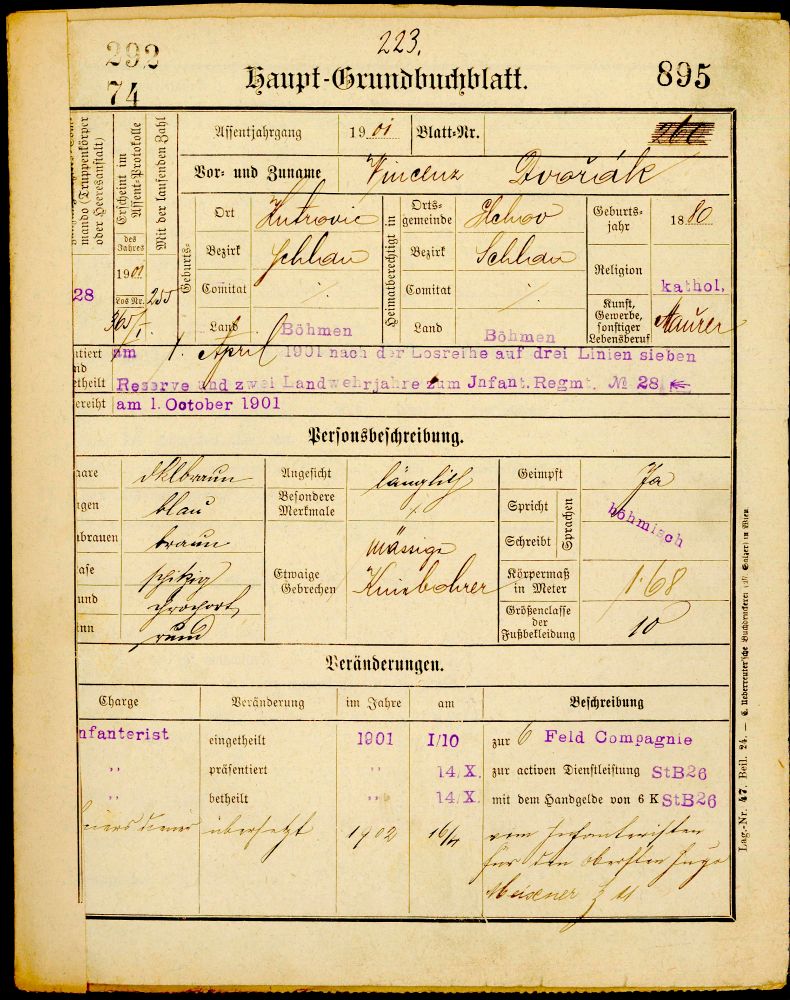 292
223.
Haupt-Grundbuchblatt.
895
74
mando (Truppenkörper
oder Heeresanstalt)
28
Erscheint im
Assent-Protokolle
des
Jahres
1901
Los Nr.
365/I.
Mit der laufenden Zahl
255
Assentjahrgang 1901 Blatt-Nr.
Vor- und Zuname Vincenz Dvořák
Geburts-
Ort Kutrovic
Bezirk Schlan
Comitat ./.
Land Böhmen
Heimatberechtigt in
Orts-
gemeinde
Bezirk Schlan
Comitat ./.
Land Böhmen
Geburts-
jahr 1880
Religion kathol,
Kunst,
Gewerbe,
sonstiger
Lebensberuf Maurer
ntiert am 1. April 1901 nach der Losreihe auf drei Linien sieben
nd
etheilt Reserve und zwei Landwehrjahre zum Jnfant. Regmt. № 28
ereiht am 1. October 1901
Personsbeschreibung.
aare dklbraun
gen blau
nbrauen braun
ase spitzig
und
inn rund
Angesicht länglich
Besondere
Merkmale ./.
Etwaige
Gebrechen mässige
Kniebohrer
Geimpft Ja
Spricht
Schreibt
Sprachen
böhmisch
Körpermaß
in Meter 1·68
Größenclasse
der
Fußbekleidung 10
Veränderungen.
Charge Veränderung im Jahre am Beschreibung
nfanterist eingetheilt 1901 I/10 zur 6 Feld Compagnie
,, präsentiert ,, 14/X. zur activen Dienstleistung StB26
,, betheilt ,, 14/X. mit dem Handgelde von 6 K StB26
übersetzt 1902 vom Infanteristen
für den Obersten Hugo
Meixner
Lag.-Nr. 47. Beil. 24. — C. Ueberreuter'sche Buchdruckerei (M. Salzer) in Wien.